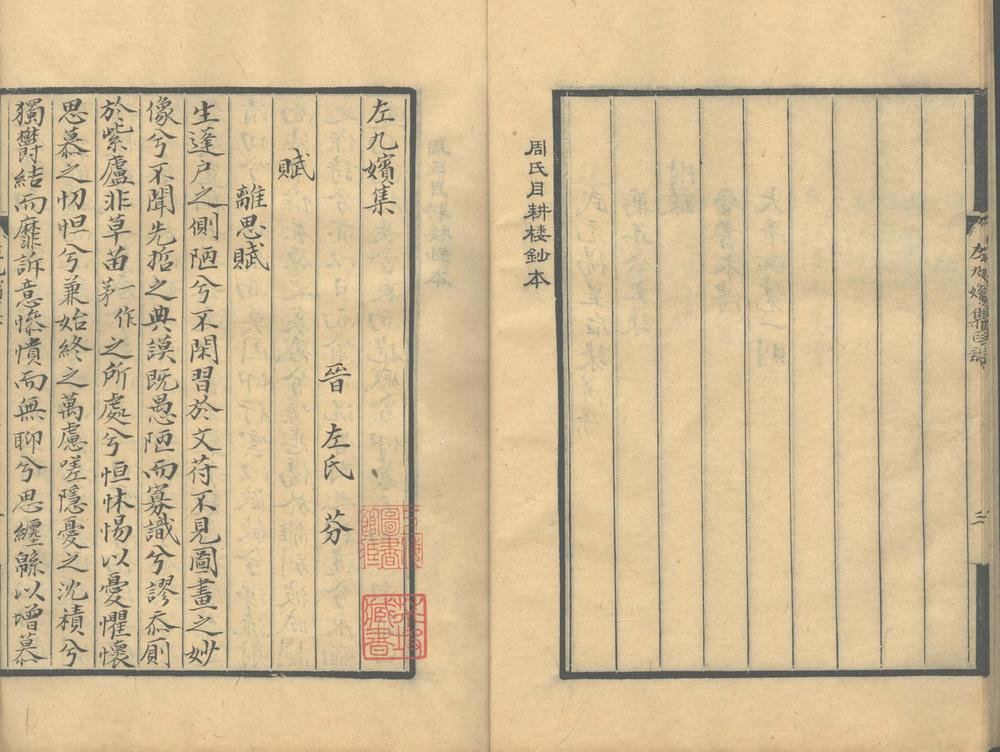 左九嬪集目錄
二
周氏目耕楼鈔本
左九嬪集
晉 左氏 芬
賦
離思賦
生蓬户之側陋兮不閑習於文苻不見圖畫之妙
像兮不聞先哲之典謨既愚陋而寡識兮謬忝厠
於紫廬非草苗一作茅之所處兮恒怵惕以憂懼懷
思慕之忉怛兮兼始終之萬慮嗟隱憂之沈積兮
獨欝結而靡訴意慘憒而無聊兮思纏緜以增慕